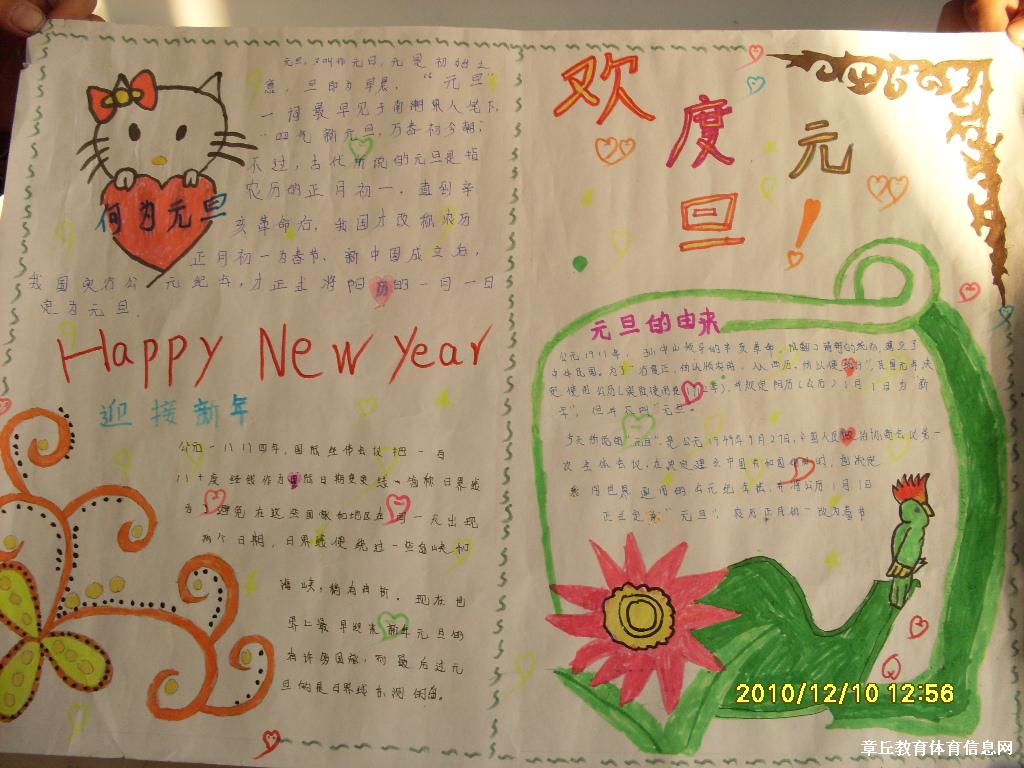 何为元旦
元旦,又叫作元日,元是初始之
意,旦即为早晨,“元旦”
一词最早见于南朝 人
四气新元旦,万寿初今朝;
不过,古代所说的元旦是指
农历的正月初一,直到辛
亥革命后,我国才改称农历
正月初一为春节,新中国成立后,
我国实行公元纪年,才正式将阳历的一月一日
定为元旦.
Happy New Year
迎接新年
公元一八八四年,国际 会议把一百
八十度经线作为国际日期变更线
为了避免在这些国家和地区在同一天出现
两个日期,日界线便绕过一些 峡和
海峡,稍为 折。现在世
界上最早迎来新年元旦的
有许多国家,而最后过元
旦的是日界线东测的
欢度元旦!
元旦的由来
公元1911年,孙中山 的辛亥革命,推翻了 的统治,建立了
中华民国。为了“ ,从西历,所以便 ”
使用公历( 使用是1912年),并规定阳历(公历)1月1日为“新
年”,但并不叫“元旦”。
今天所说的“元旦”是公元1949年9月27日,中国人民政治协商会议第一
次全体会议,在决定建立中国 的 时,也决定
采用世界通用的公元纪年法,并将公历1月1日
正式定为“元旦”,农历正月初一改为春节
2010/12/10 12:56
章丘教育体育信息网